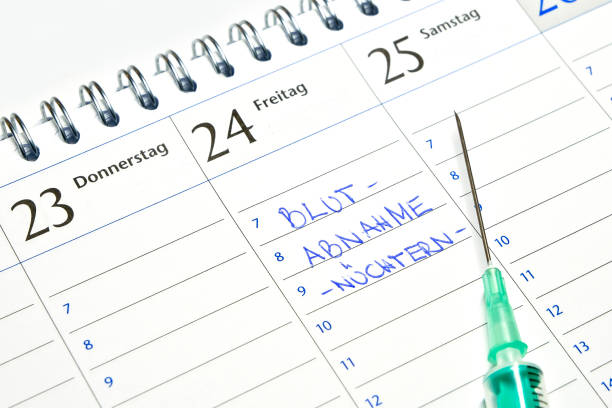 23 Donnerstag
7
8
9
24 Freitag
7 BLUT-
8 ABNAHME
9 -NÜCHTERN-
10
11
12
25 Samstag
7
8
9
10
11
12
13
14